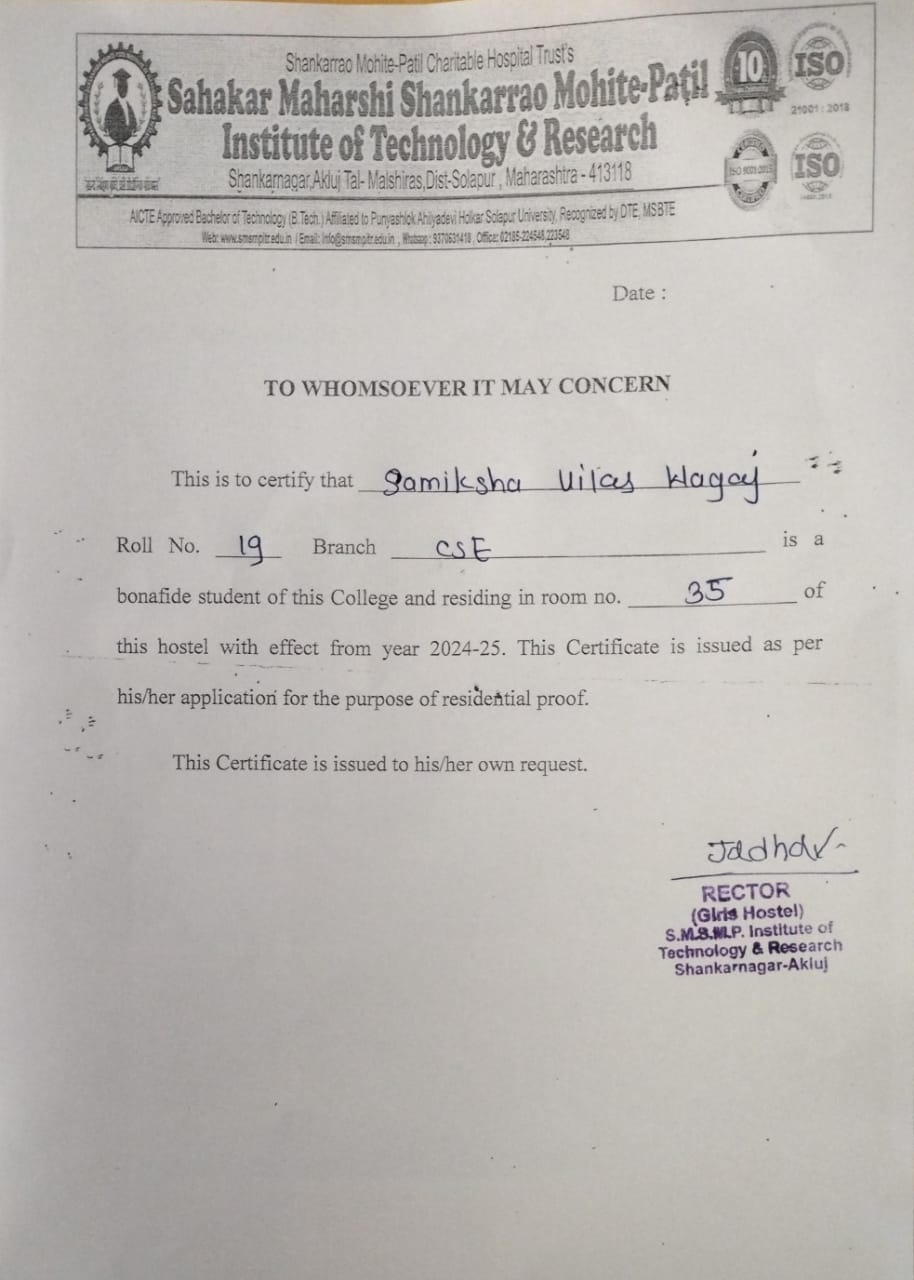 Shankarrao Mohite-Patil Charitable Hospital Trust's
Sahakar Maharshi Shankarrao Mohite-Patil
Institute of Technology & Research
Shankarnagar,Akluj Tal- Malshiras,Dist-Solapur , Maharashtra - 413118
10
ISO
21001 : 2018
CERTIFIED
ISO 9001:2015
ISO
AICTE Approved Bachelor of Technology (B.Tech.) Affiliated to Punyashlok Ahilyadevi Holkar Solapur University, Recognized by DTE, MSBTE
Web: www.smsmpitr.edu.in / Email: info@smsmpitr.edu.in , Whatsapp : 9370631418 , Office: 02185-224548,223548
Date :
TO WHOMSOEVER IT MAY CONCERN
This is to certify that Samiksha Vilas Wagaj
Roll No. 19 Branch CSE is a
bonafide student of this College and residing in room no. 35 of
this hostel with effect from year 2024-25. This Certificate is issued as per
his/her application for the purpose of residential proof.
This Certificate is issued to his/her own request.
Jadhav
RECTOR
(Girls Hostel)
S.M.S.M.P. Institute of
Technology & Research
Shankarnagar-Akluj